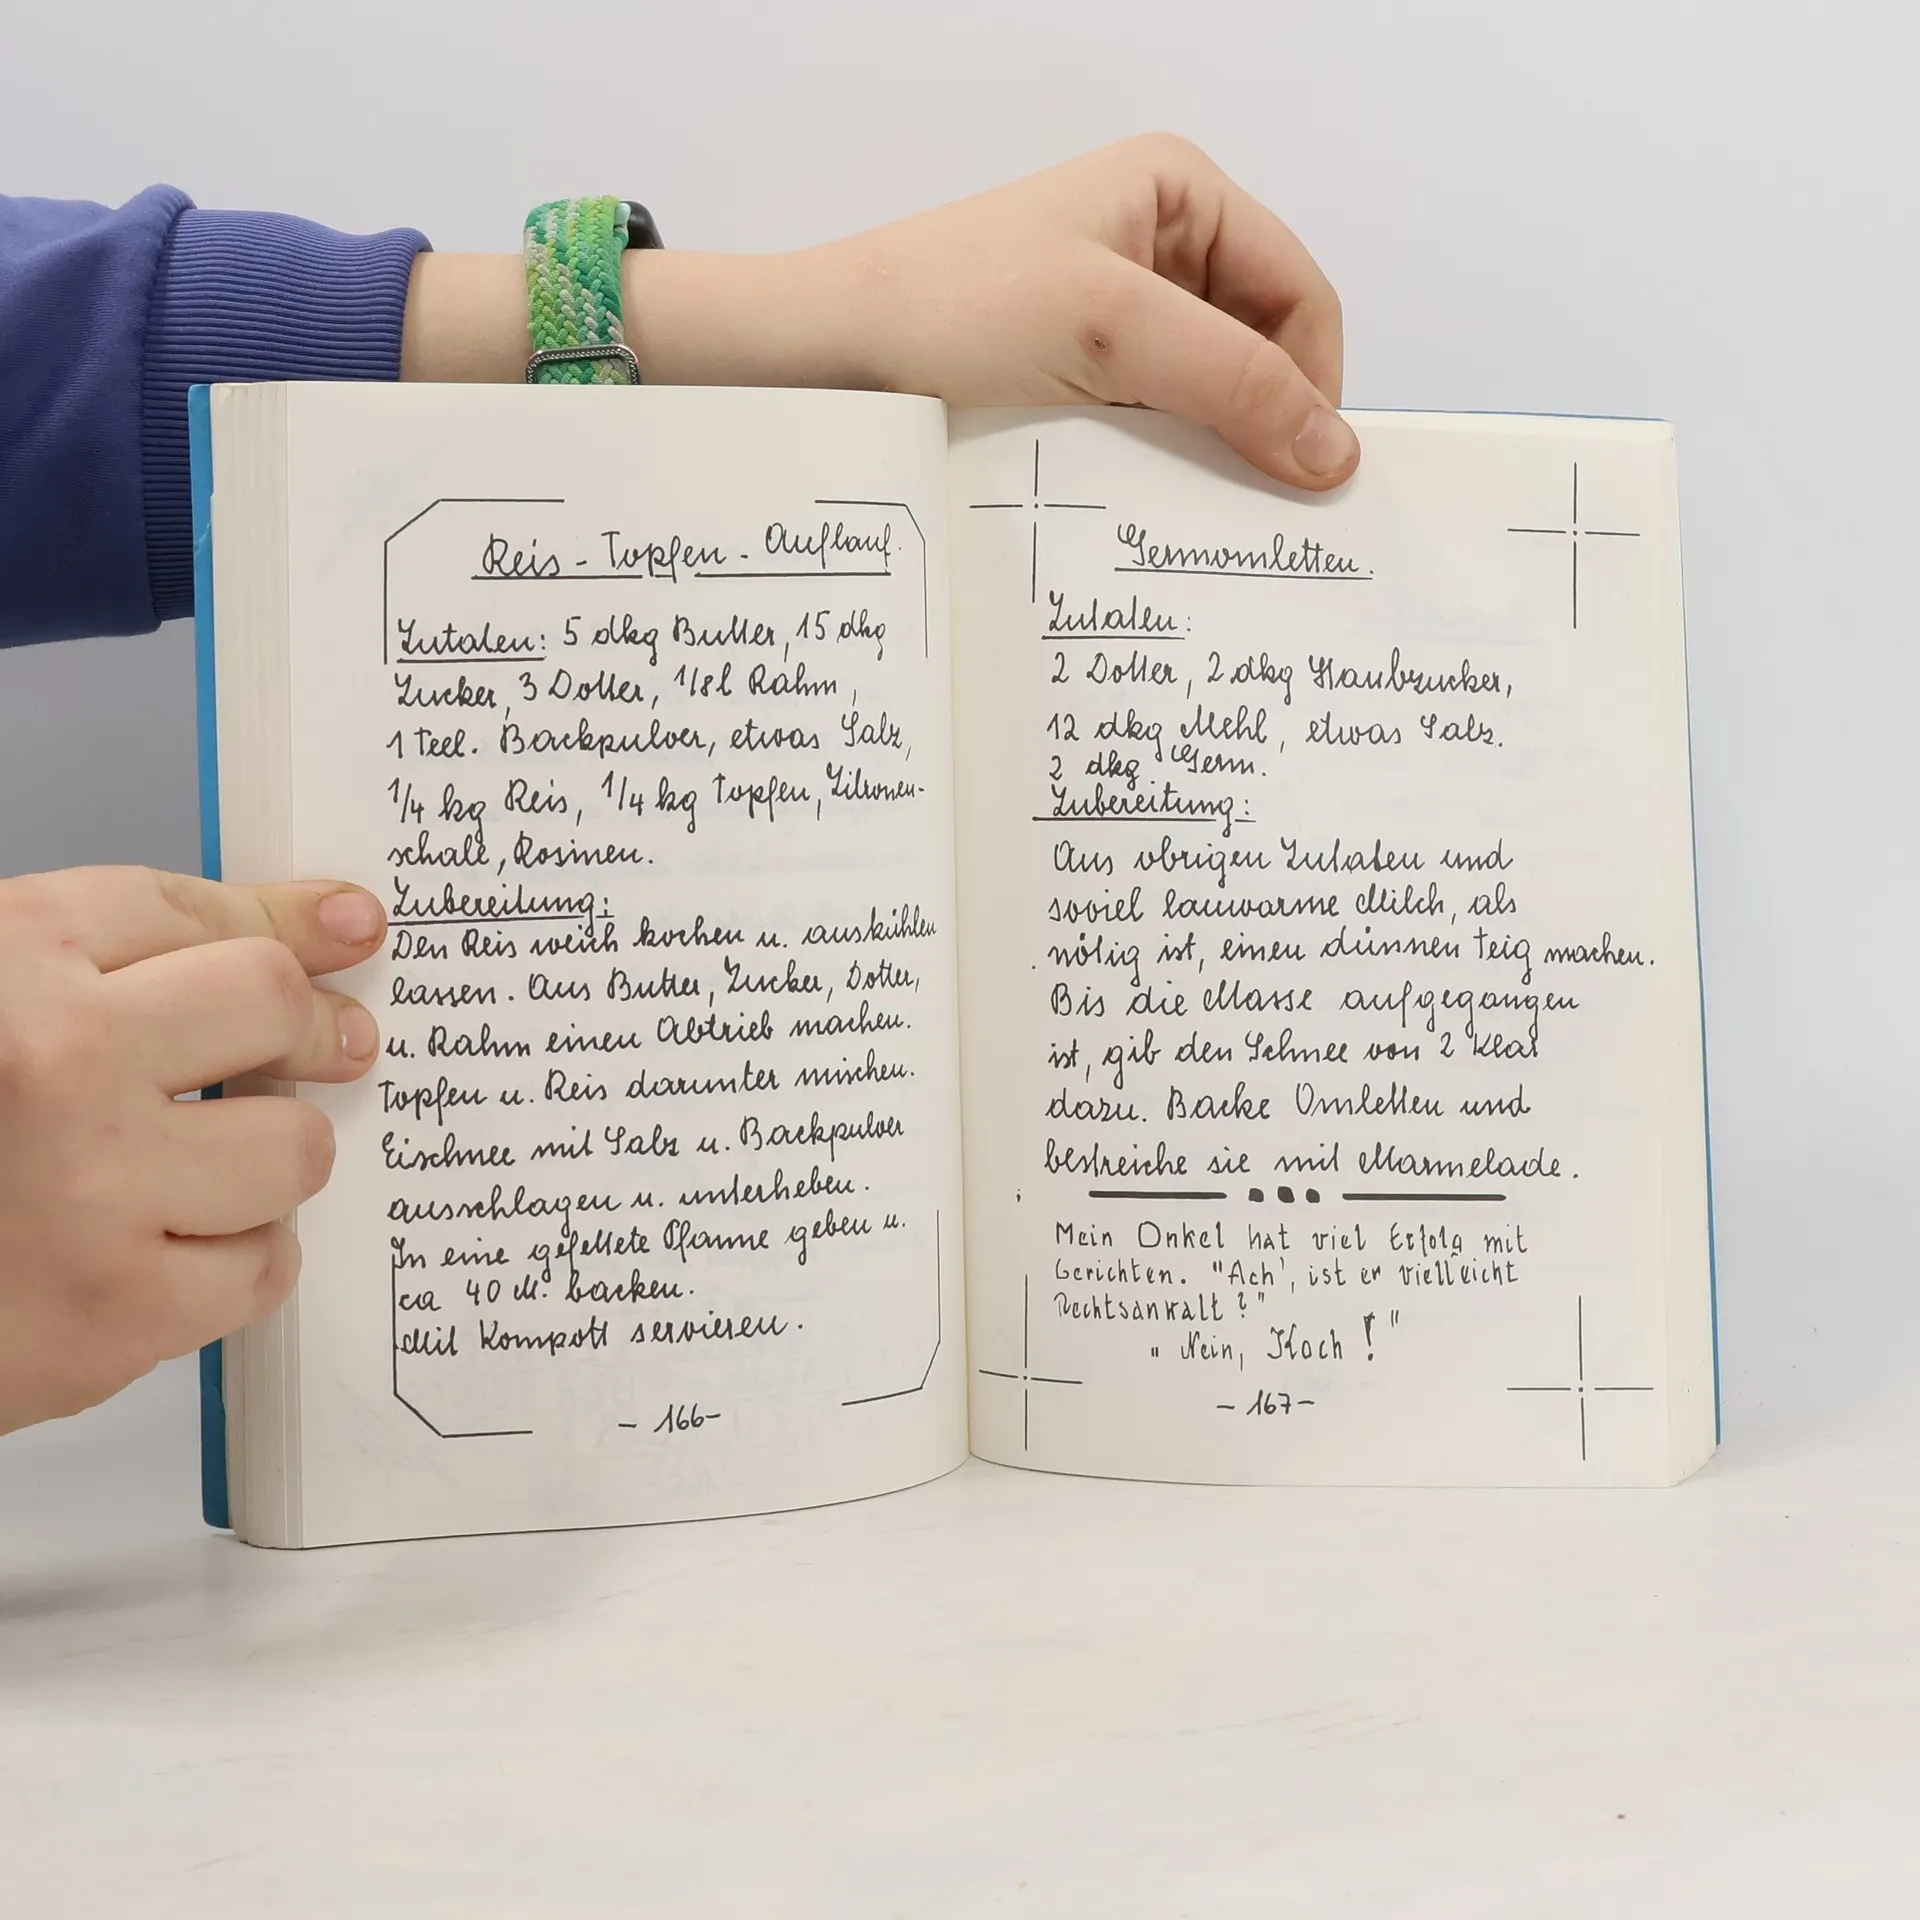 Reis - Topfen - Auflauf.
Zutaten: 5 dkg Butter, 15 dkg
Zucker, 3 Dotter, 1/8 l Rahm,
1 Teel. Backpulver, etwas Salz,
1/4 kg Reis, 1/4 kg Topfen, Zitronen-
schale, Rosinen.
Zubereitung:
Den Reis weich kochen u. auskühlen
lassen. Aus Butter, Zucker, Dotter,
u. Rahm einen Abtrieb machen.
Topfen u. Reis darunter mischen.
Eischnee mit Salz u. Backpulver
ausschlagen u. unterheben.
In eine gefettete Pfanne geben u.
ca 40 M. backen.
Mit Kompott servieren.
- 166 -
Germomletten.
Zutaten:
2 Dotter, 2 dkg Staubzucker,
12 dkg Mehl, etwas Salz.
2 dkg Germ.
Zubereitung:
Aus obrigen Zutaten und
soviel lauwarme Milch, als
nötig ist, einen dünnen Teig machen.
Bis die Masse aufgegangen
ist, gib den Schnee von 2 Klar
dazu. Backe Omletten und
bestreiche sie mit Marmelade.
Mein Onkel hat viel Erfolg mit
Gerichten. "Ach', ist er vielleicht
Rechtsanwalt?"
"Nein, Koch!"
- 167 -